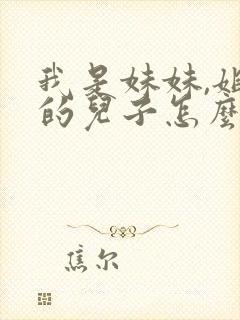 我是妹妹,姐
的兒子怎麼
焦尔